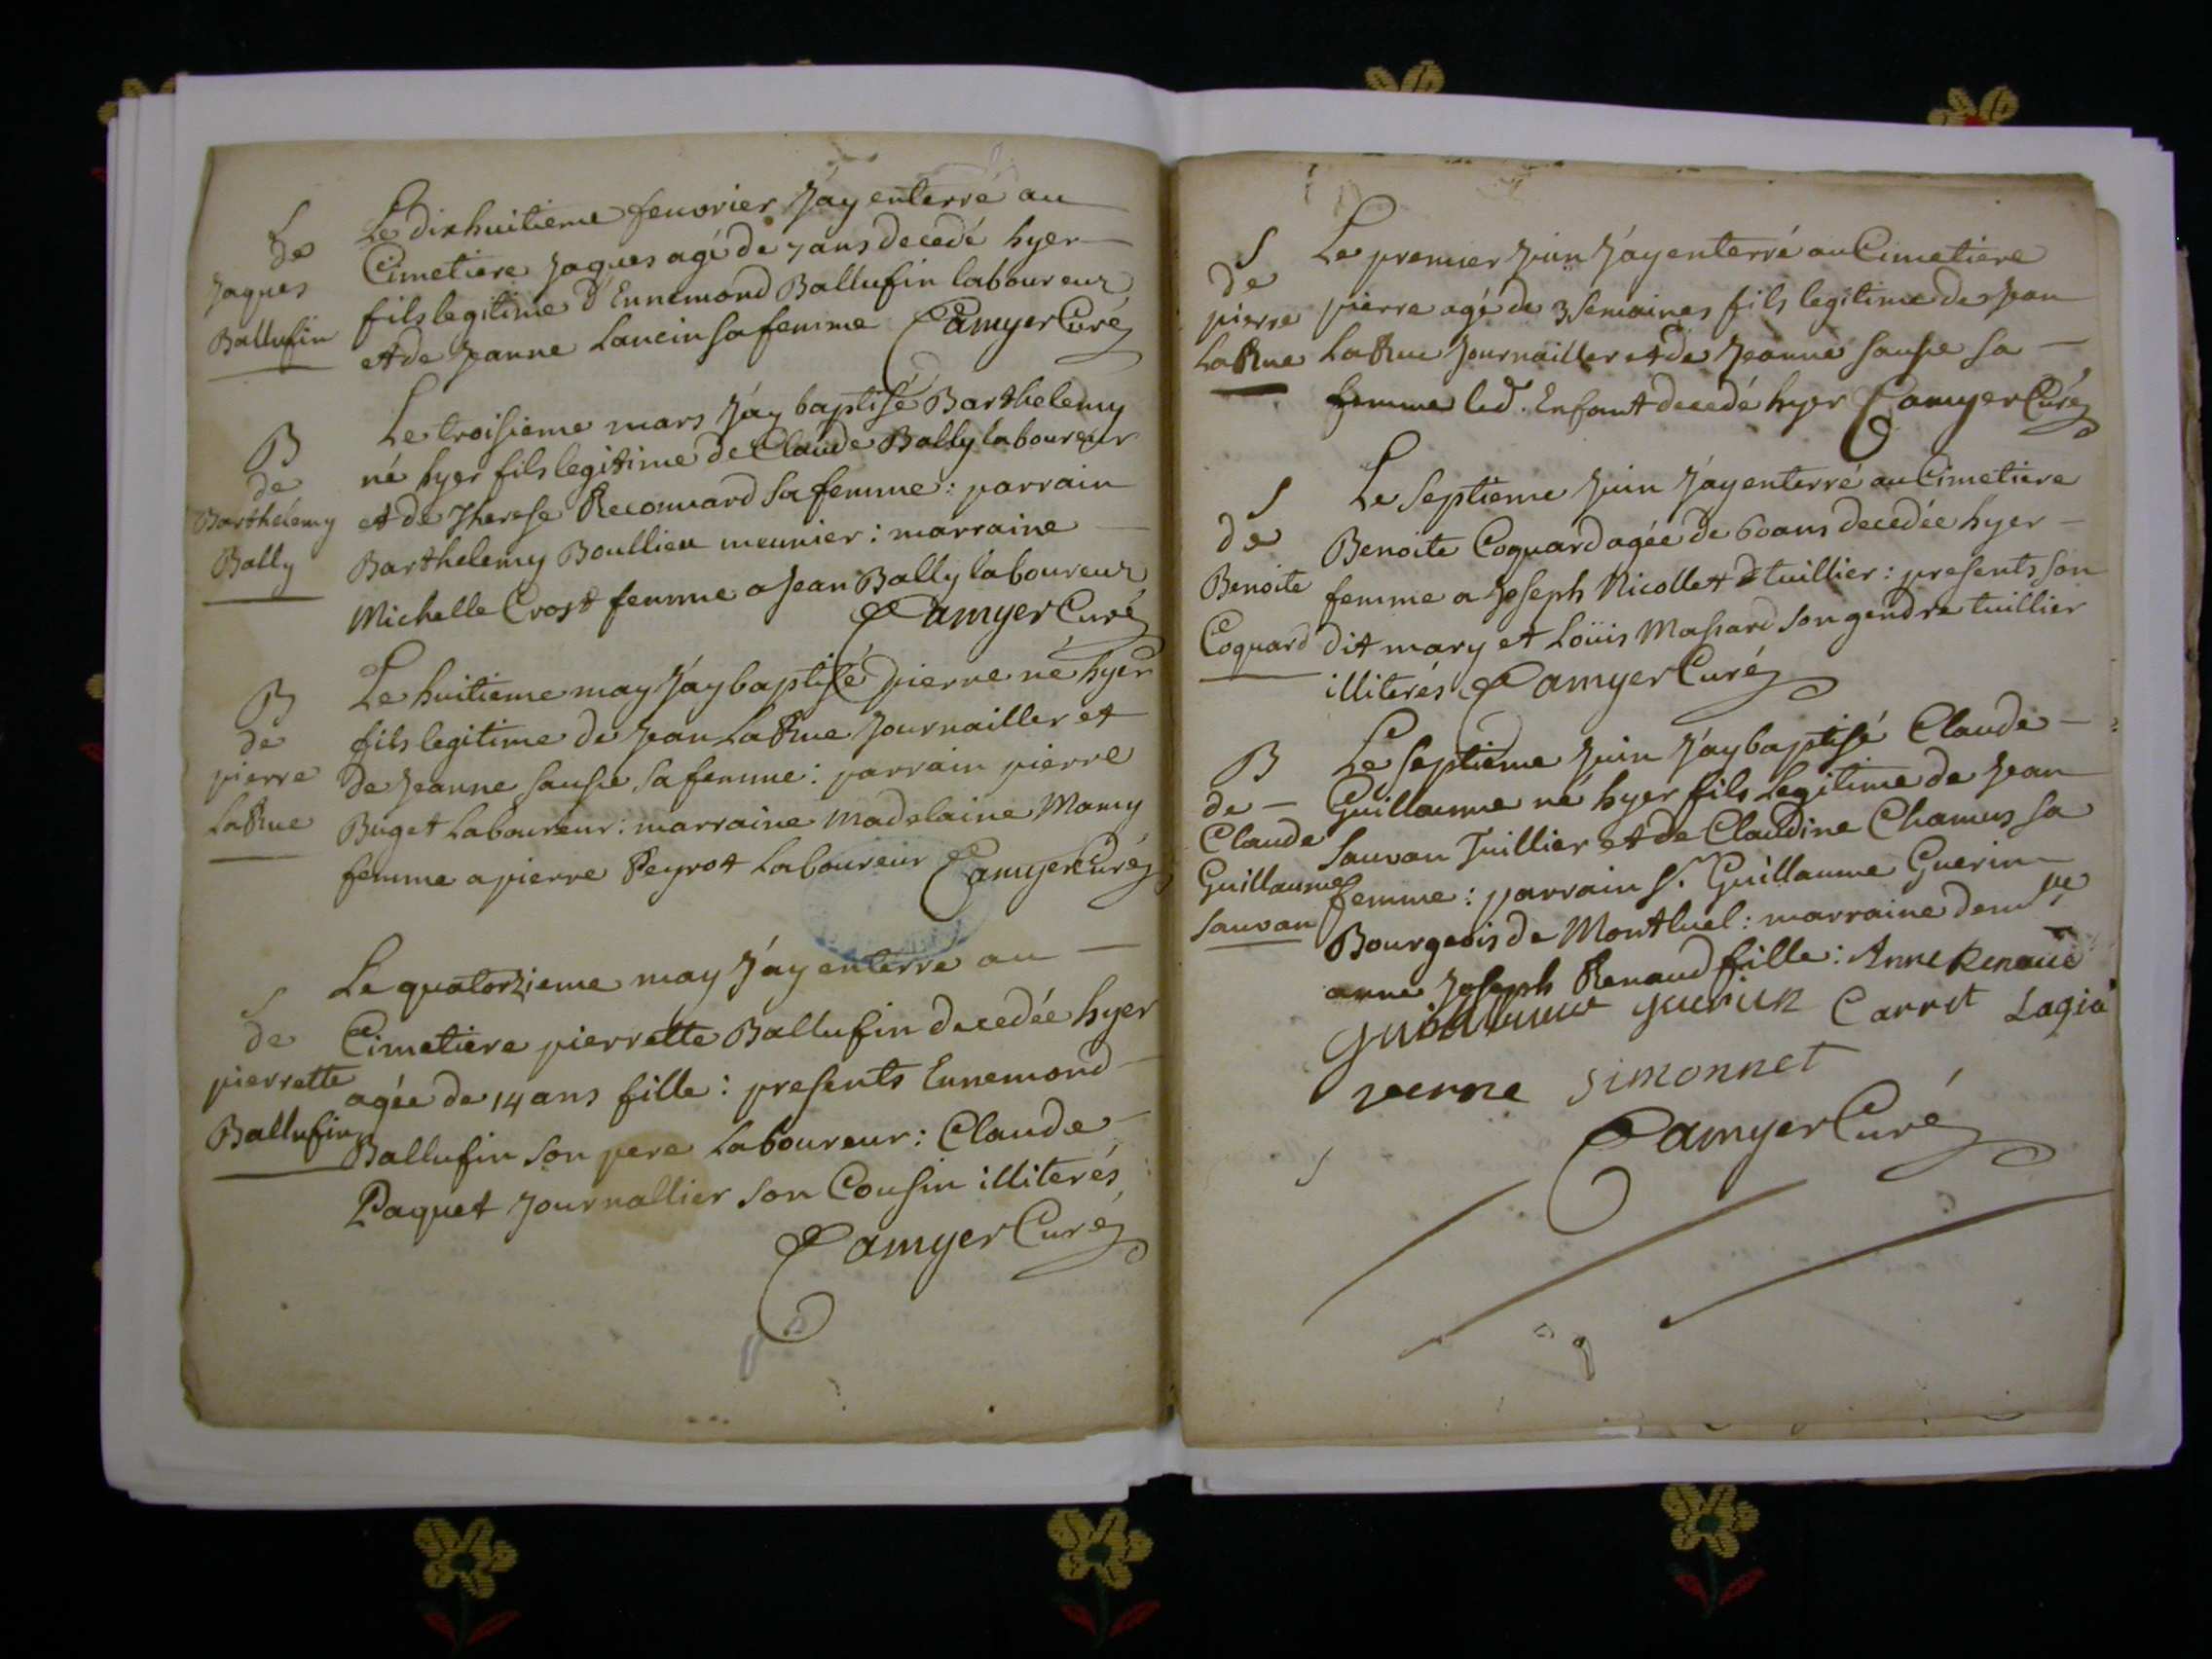 S
de
Jaques
Ballufin
Le dixhuitieme feuvrier J'ay enterré au
Cimetiere Jaques agé de 7 ans decedé hyer
fils legitime d'Ennemond Ballufin laboureur
et de Jeanne Lancin sa femme Camyer Curé
B
de
Barthelemy
Bally
Le troisieme mars J'ay baptisé Barthelemy
né hyer fils legitime de Claude Bally laboureur
et de Therese Reconvard sa femme : parrain
Barthelemy Boullieu meunier : marraine
Michelle Crost femme a Jean Bally laboureur
Camyer Curé
B
de
pierre
LaRue
Le huitieme may J'ay baptisé pierre né hyer
fils legitime de Jean LaRue Journailler et
de Jeanne sausse sa femme : parrain pierre
Buget Laboureur : marraine madelaine Mamy
femme a pierre Peyrot Laboureur Camyer Curé
S
de
pierrette
Ballufin
Le quatorzieme may J'ay enterré au
Cimetiere pierrette Ballufin decedée hyer
agée de 14 ans fille : presents Ennemond
Ballufin son pere Laboureur : Claude
Paquet Journallier son Cousin illiterés
Camyer Curé
S
de
pierre
LaRue
Le premier Juin J'ay enterré au Cimetiere
pierre agé de 3 semaines fils legitime de Jean
LaRue Journailler et de Jeanne sausse sa
femme led. Enfant decedé hyer Camyer Curé
S
de
Benoite
Coquard
Le septieme Juin J'ay enterré au Cimetiere
Benoite Coquard agée de 60 ans decedée hyer
femme a Joseph Nicollet tuillier : presents son
dit mary et Loüis Massard son gendre tuillier
illiterés Camyer Curé
B
de
Claude
Guillaume
sauvan
Le septieme Juin J'ay baptisé Claude
Guillaume né hyer fils Legitime de Jean
sauvan Tuillier et de Claudine Chamus sa
femme : parrain Sr. Guillaume Guerin
Bourgeois de Montluel : marraine demlle
anne Joseph Renaud fille : Anne Renaud
guillaume guerin Carret Lagié
verne simonnet
Camyer Curé